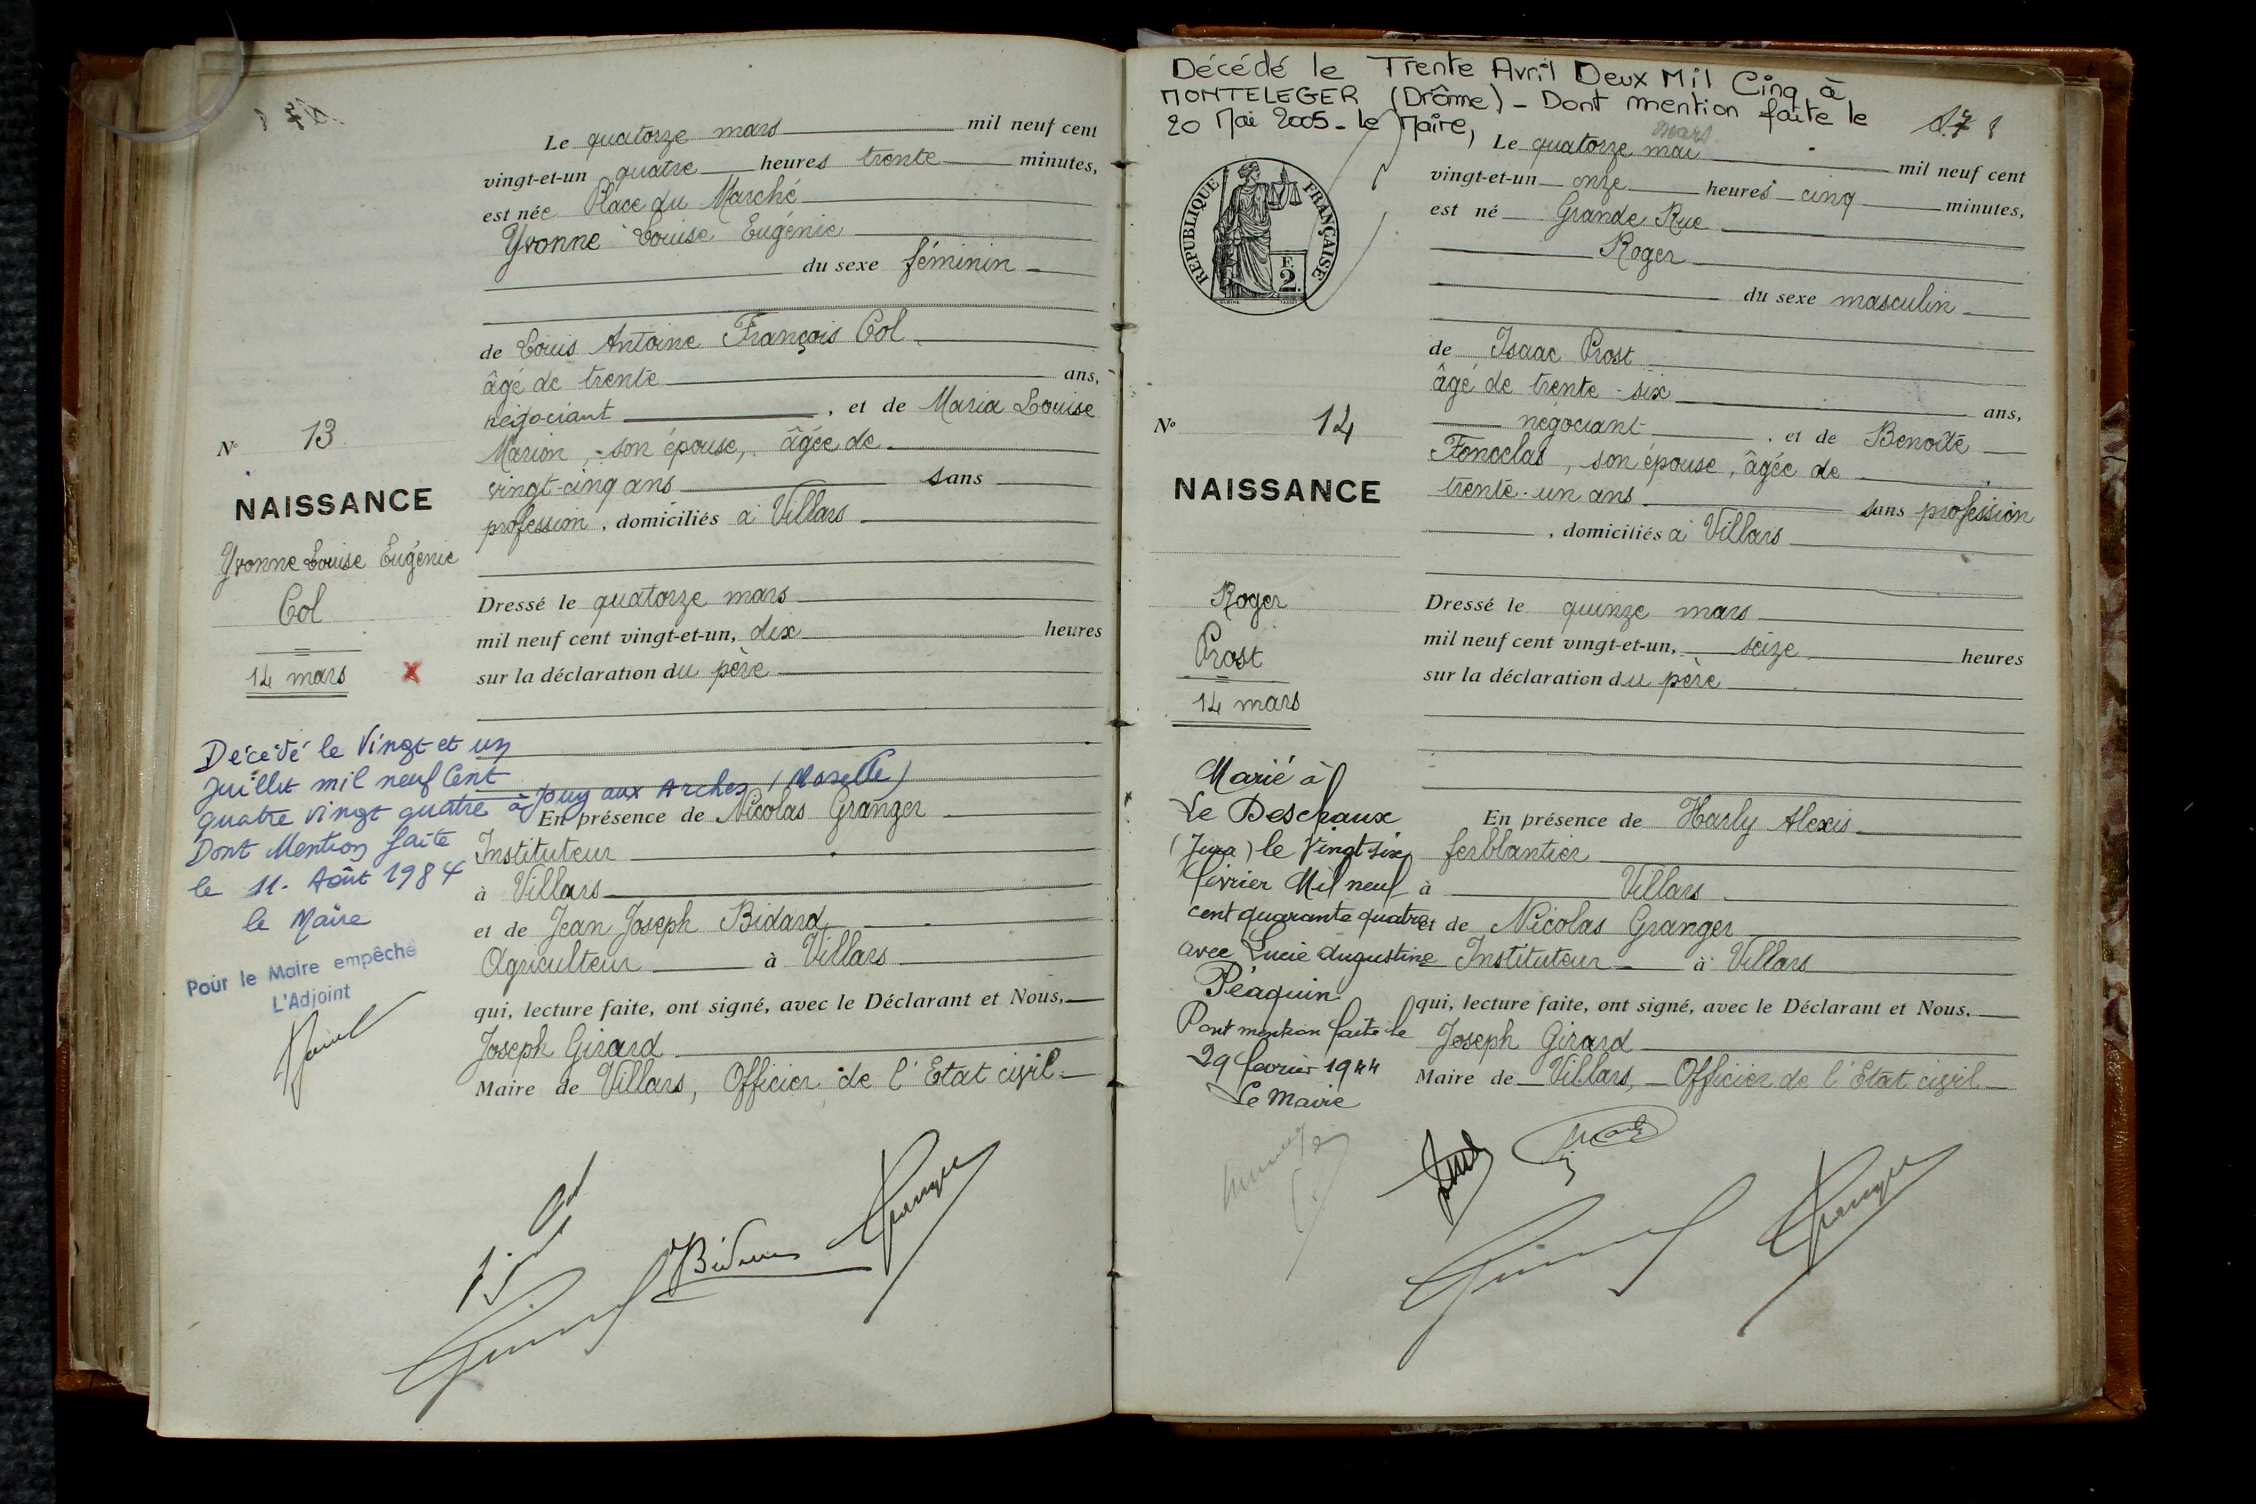 Le quatorze mars mil neuf cent
vingt-et-un quatre heures trente minutes,
est née Place du Marché
Yvonne Louise Eugénie
du sexe féminin
de Louis Antoine François Col
âgé de trente ans,
négociant, et de Maria Louise
Marion, son épouse, âgée de
vingt-cinq ans sans
profession, domiciliés à Villars
N° 13
NAISSANCE
Yvonne Louise Eugénie
Col
14 mars X
Dressé le quatorze mars
mil neuf cent vingt-et-un, dix heures
sur la déclaration du père
Décédé le Vingt et un
Juillet mil neuf Cent
quatre vingt quatre à Jouy aux Arches (Moselle)
Dont Mention faite
le 11. Août 1984
le Maire
Pour le Maire empêché
L'Adjoint
En présence de Nicolas Granger
Instituteur
à Villars
et de Jean Joseph Bidard
Agriculteur à Villars
qui, lecture faite, ont signé, avec le Déclarant et Nous,
Joseph Girard
Maire de Villars, Officier de l'Etat civil
Décédé le Trente Avril Deux Mil Cinq à
MONTELEGER (Drôme) - Dont mention faite le
20 Mai 2005 - le Maire,
REPUBLIQUE FRANÇAISE
F.
2.
mars
Le quatorze mai mil neuf cent
vingt-et-un onze heures cinq minutes,
est né Grande Rue
Roger
du sexe masculin
de Isaac Prost
âgé de trente-six ans,
négociant, et de Benoîte
Fonoclas, son épouse, âgée de
trente-un ans sans profession
, domiciliés à Villars
N° 14
NAISSANCE
Roger
Prost
14 mars
Dressé le quinze mars
mil neuf cent vingt-et-un, seize heures
sur la déclaration du père
Marié à
Le Deschaux
(Jura) le Vingt six
février Mil neuf
cent quarante quatre
avec Lucie Augustine
Péaquin
Dont mention faite le
29 février 1944
Le Maire
En présence de Harly Alexis
ferblantier
à Villars
et de Nicolas Granger
Instituteur à Villars
qui, lecture faite, ont signé, avec le Déclarant et Nous,
Joseph Girard
Maire de Villars, Officier de l'Etat civil